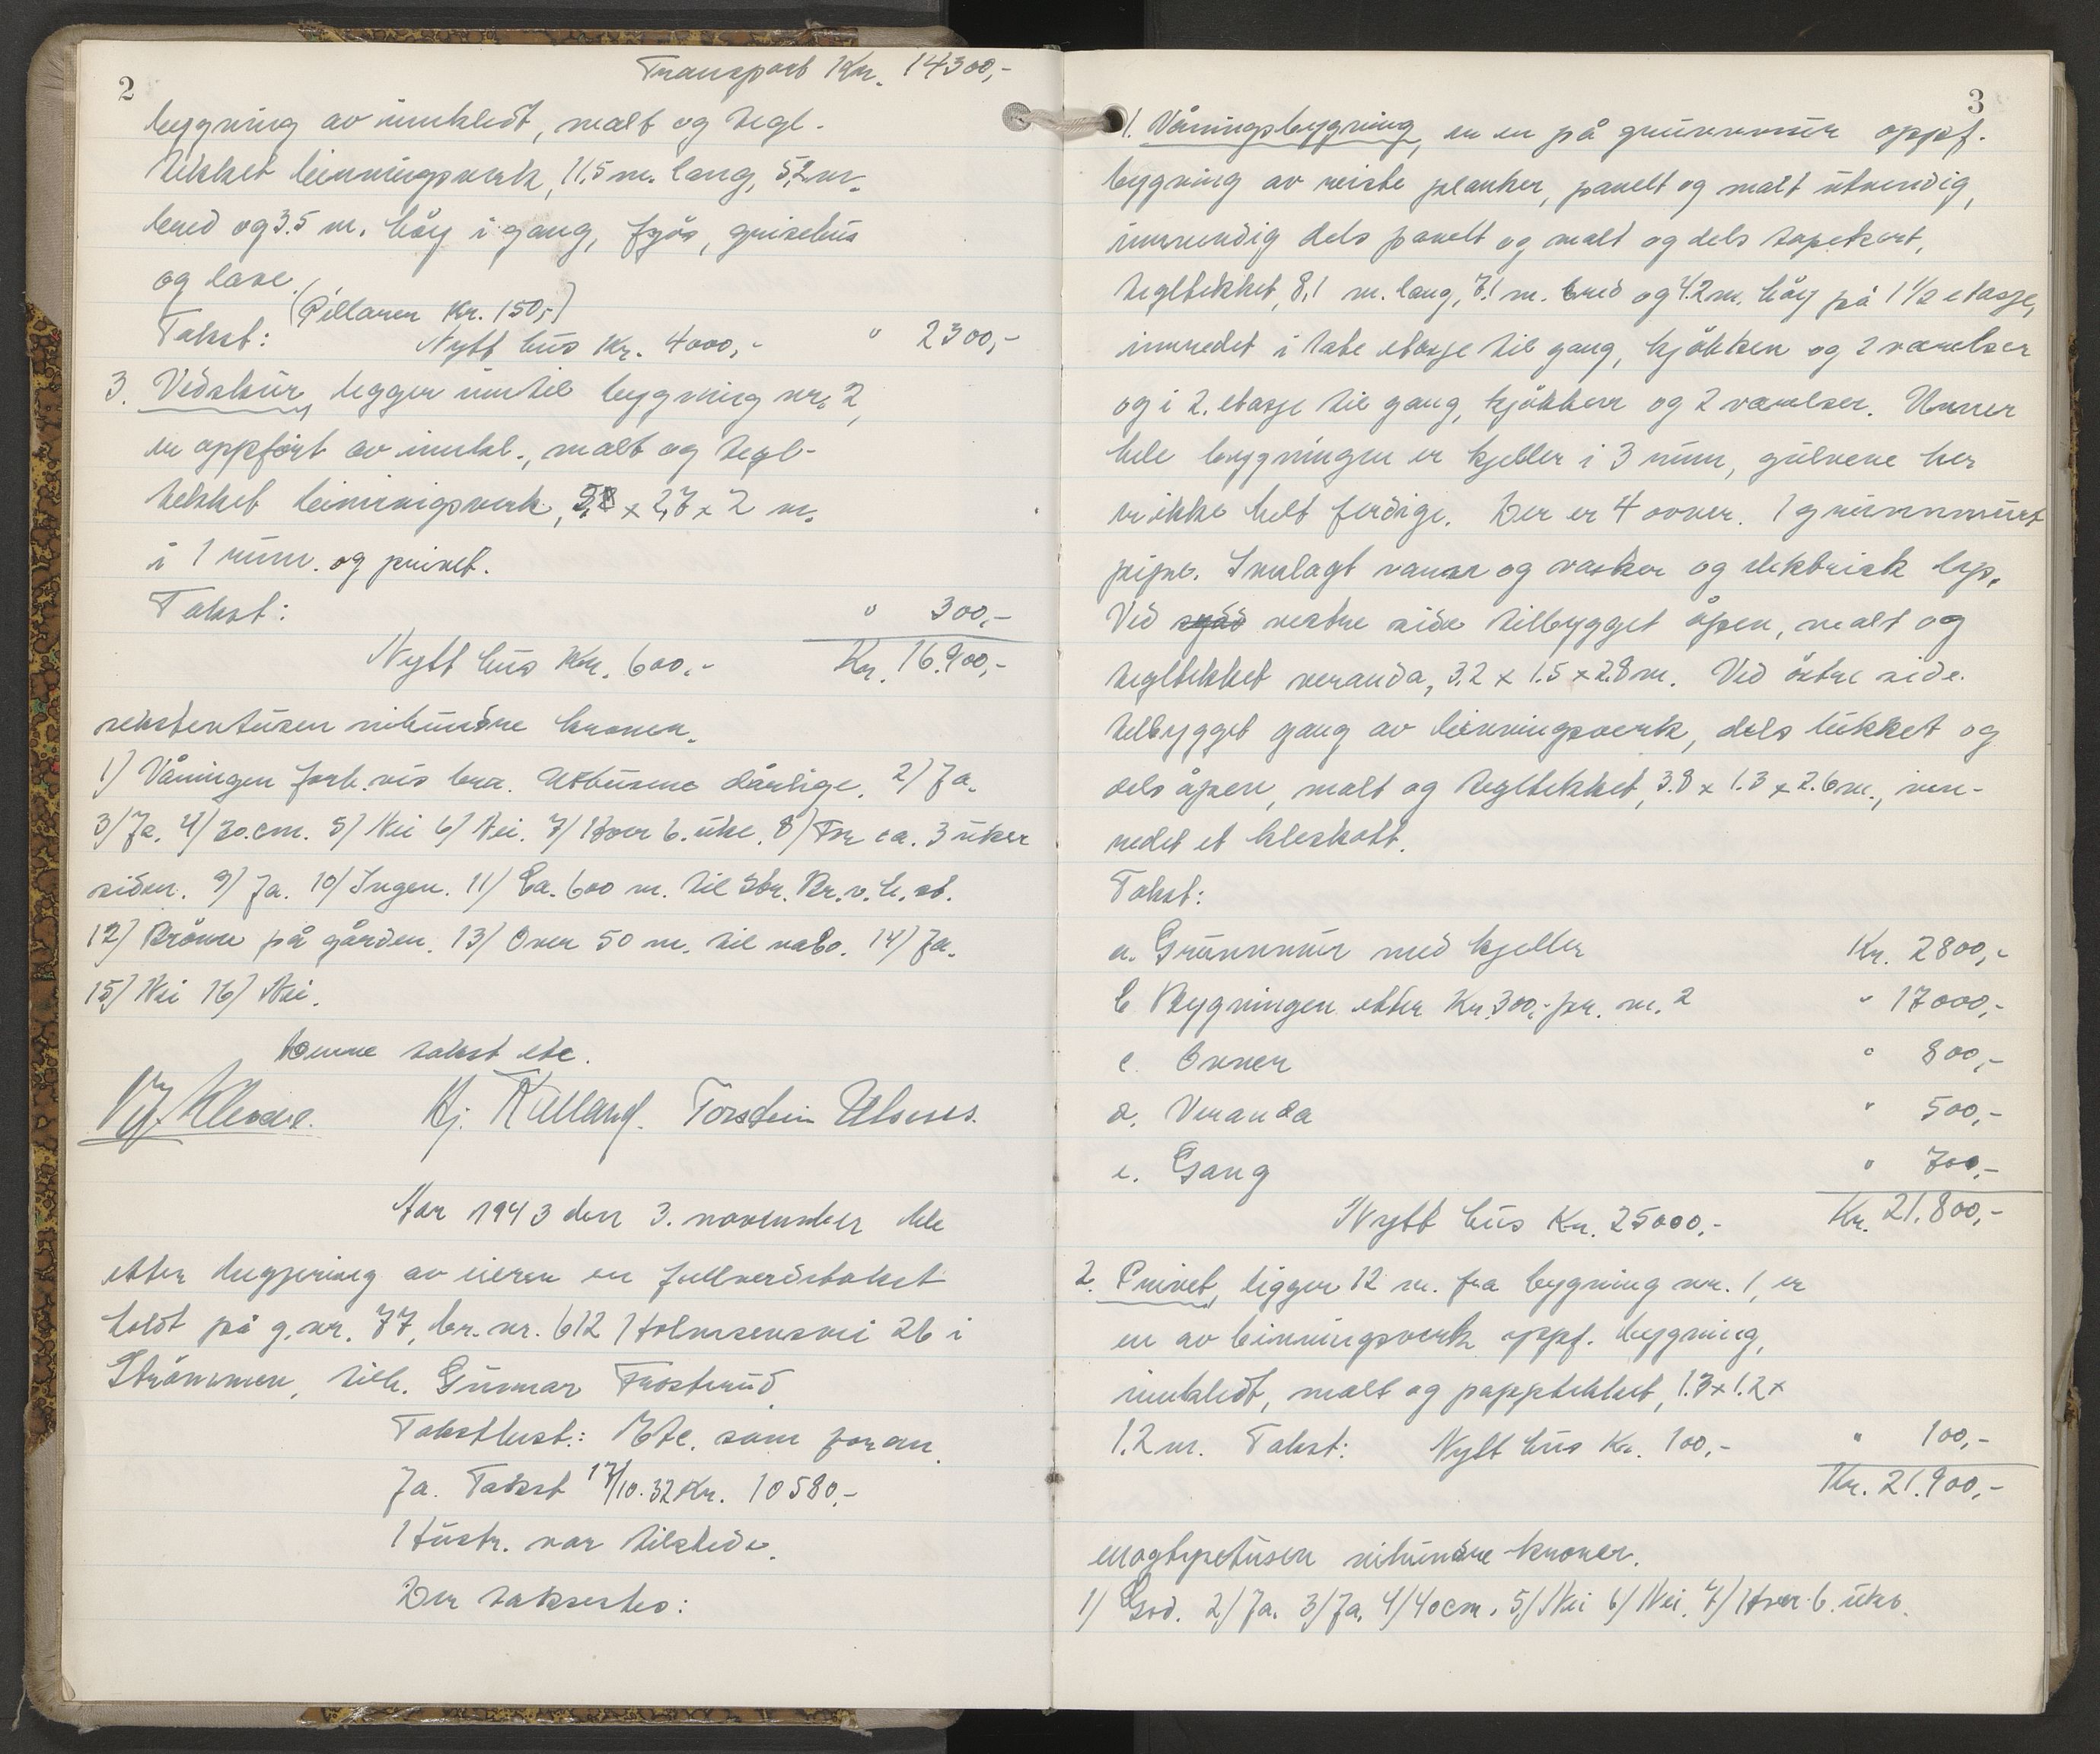 2
Transport Kr. 14300,-
bygning av innkledt, malt og tegl-
tekket binningsverk, 11,5 m. lang, 5,2 m.
bred og 3.5 m. høy i gang, fjös, grisehus
og låve.
(Pillaren Kr. 150,-)
Takst: Nytt hus Kr. 4000,- " 2300,-
3. Vedskur, ligger inntil bygning nr. 2,
er oppført av innkl., malt og tegl-
tekket binningsverk, x 2,7 x 2 m.
i 1 rum. og privet.
Takst: " 300,-
Nytt hus Kr. 600,- Kr. 16.900,-
sekstentusen nihundre kroner.
1) Våningen forh.vis bra. Uthusene dårlige. 2) Ja.
3) Ja. 4) 30.cm. 5) Nei 6) Nei. 7) Hver 6. uke. 8) For ca. 3 uker
siden. 9) Ja. 10) Ingen. 11) Ca. 600 m. til Str. Br.v.h.st.
12) Brönn på gården. 13) Over 50 m. til nabo. 14) Ja.
15) Nei 16) Nei.
Denne takst etc.
Hj. Kulland. Torstein
Aar 1943 den 3. november ble
etter begjæring av eieren en fullverdstakst
holdt på g.nr. 77, br.nr. 612 Holmsensvei 26 i
Strömmen, tilh. Gunnar Frostrud.
Takstbest.: Etc. som foran.
Ja. Takst 17/10.32 Kr. 10580,-
Hustr. var tilstede.
Der taksertes:
3
1. Våningsbygning, er en på grunnmur oppf.
bygning av reiste planker, panelt og malt utvendig,
innvendig dels panelt og malt og dels tapetsert,
tegltekket, 8,1 m. lang, 7.1 m. bred og 4.2 m. høy på 1 1/2 etasje,
innredet i 1ste etasje til gang, kjökken og 2 værelser
og i 2. etasje til gang, kjökken og 2 værelser. Unner
hele bygningen er kjeller i 3 rum, gulvene her
er ikke helt ferdige. Der er 4 ovner. 1 grunnmurt
pipe. Innlagt vann og vasker og elektrisk lys.
Ved vestre side tilbygget åpen, malt og
tegltekket veranda, 3.2 x 1.5 x 2.8 m. Ved östre side.
tilbygget gang av binningsverk, dels lukket og
dels åpen, malt og tegltekket, 3.8 x 1.3 x 2.6 m., inn-
redet et kleskott.
Takst:
a. Grunnmur med kjeller Kr. 2800,-
b Bygningen etter Kr. 300,- pr. m.2 " 17000,-
c. Ovner " 800,-
d. Veranda " 500,-
e. Gang " 700,-
Nytt hus Kr. 25000,- Kr. 21.800,-
2. Privet, ligger 12 m. fra bygning nr. 1, er
en av binningsverk oppf. bygning,
innkledt, malt og papptekket, 1.3 x 1.2 x
1.2 m. Takst: Nytt hus Kr. 100,- " 100,-
Kr. 21.900,-
enogtyvetusen nihundre kroner.
1) God. 2) Ja. 3) Ja. 4) 40cm. 5) Nei 6) Nei. 7) Hver 6. uke.